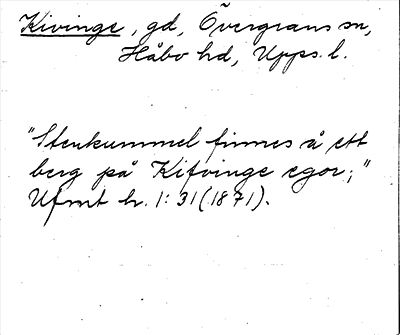 Kivinge, gd, Övergrans sn,
Håbo hd, Upps. l.
"Stenkummel finnes å ett
berg på Kifvinge egor;"
Ufmt h. 1:31 (1871).